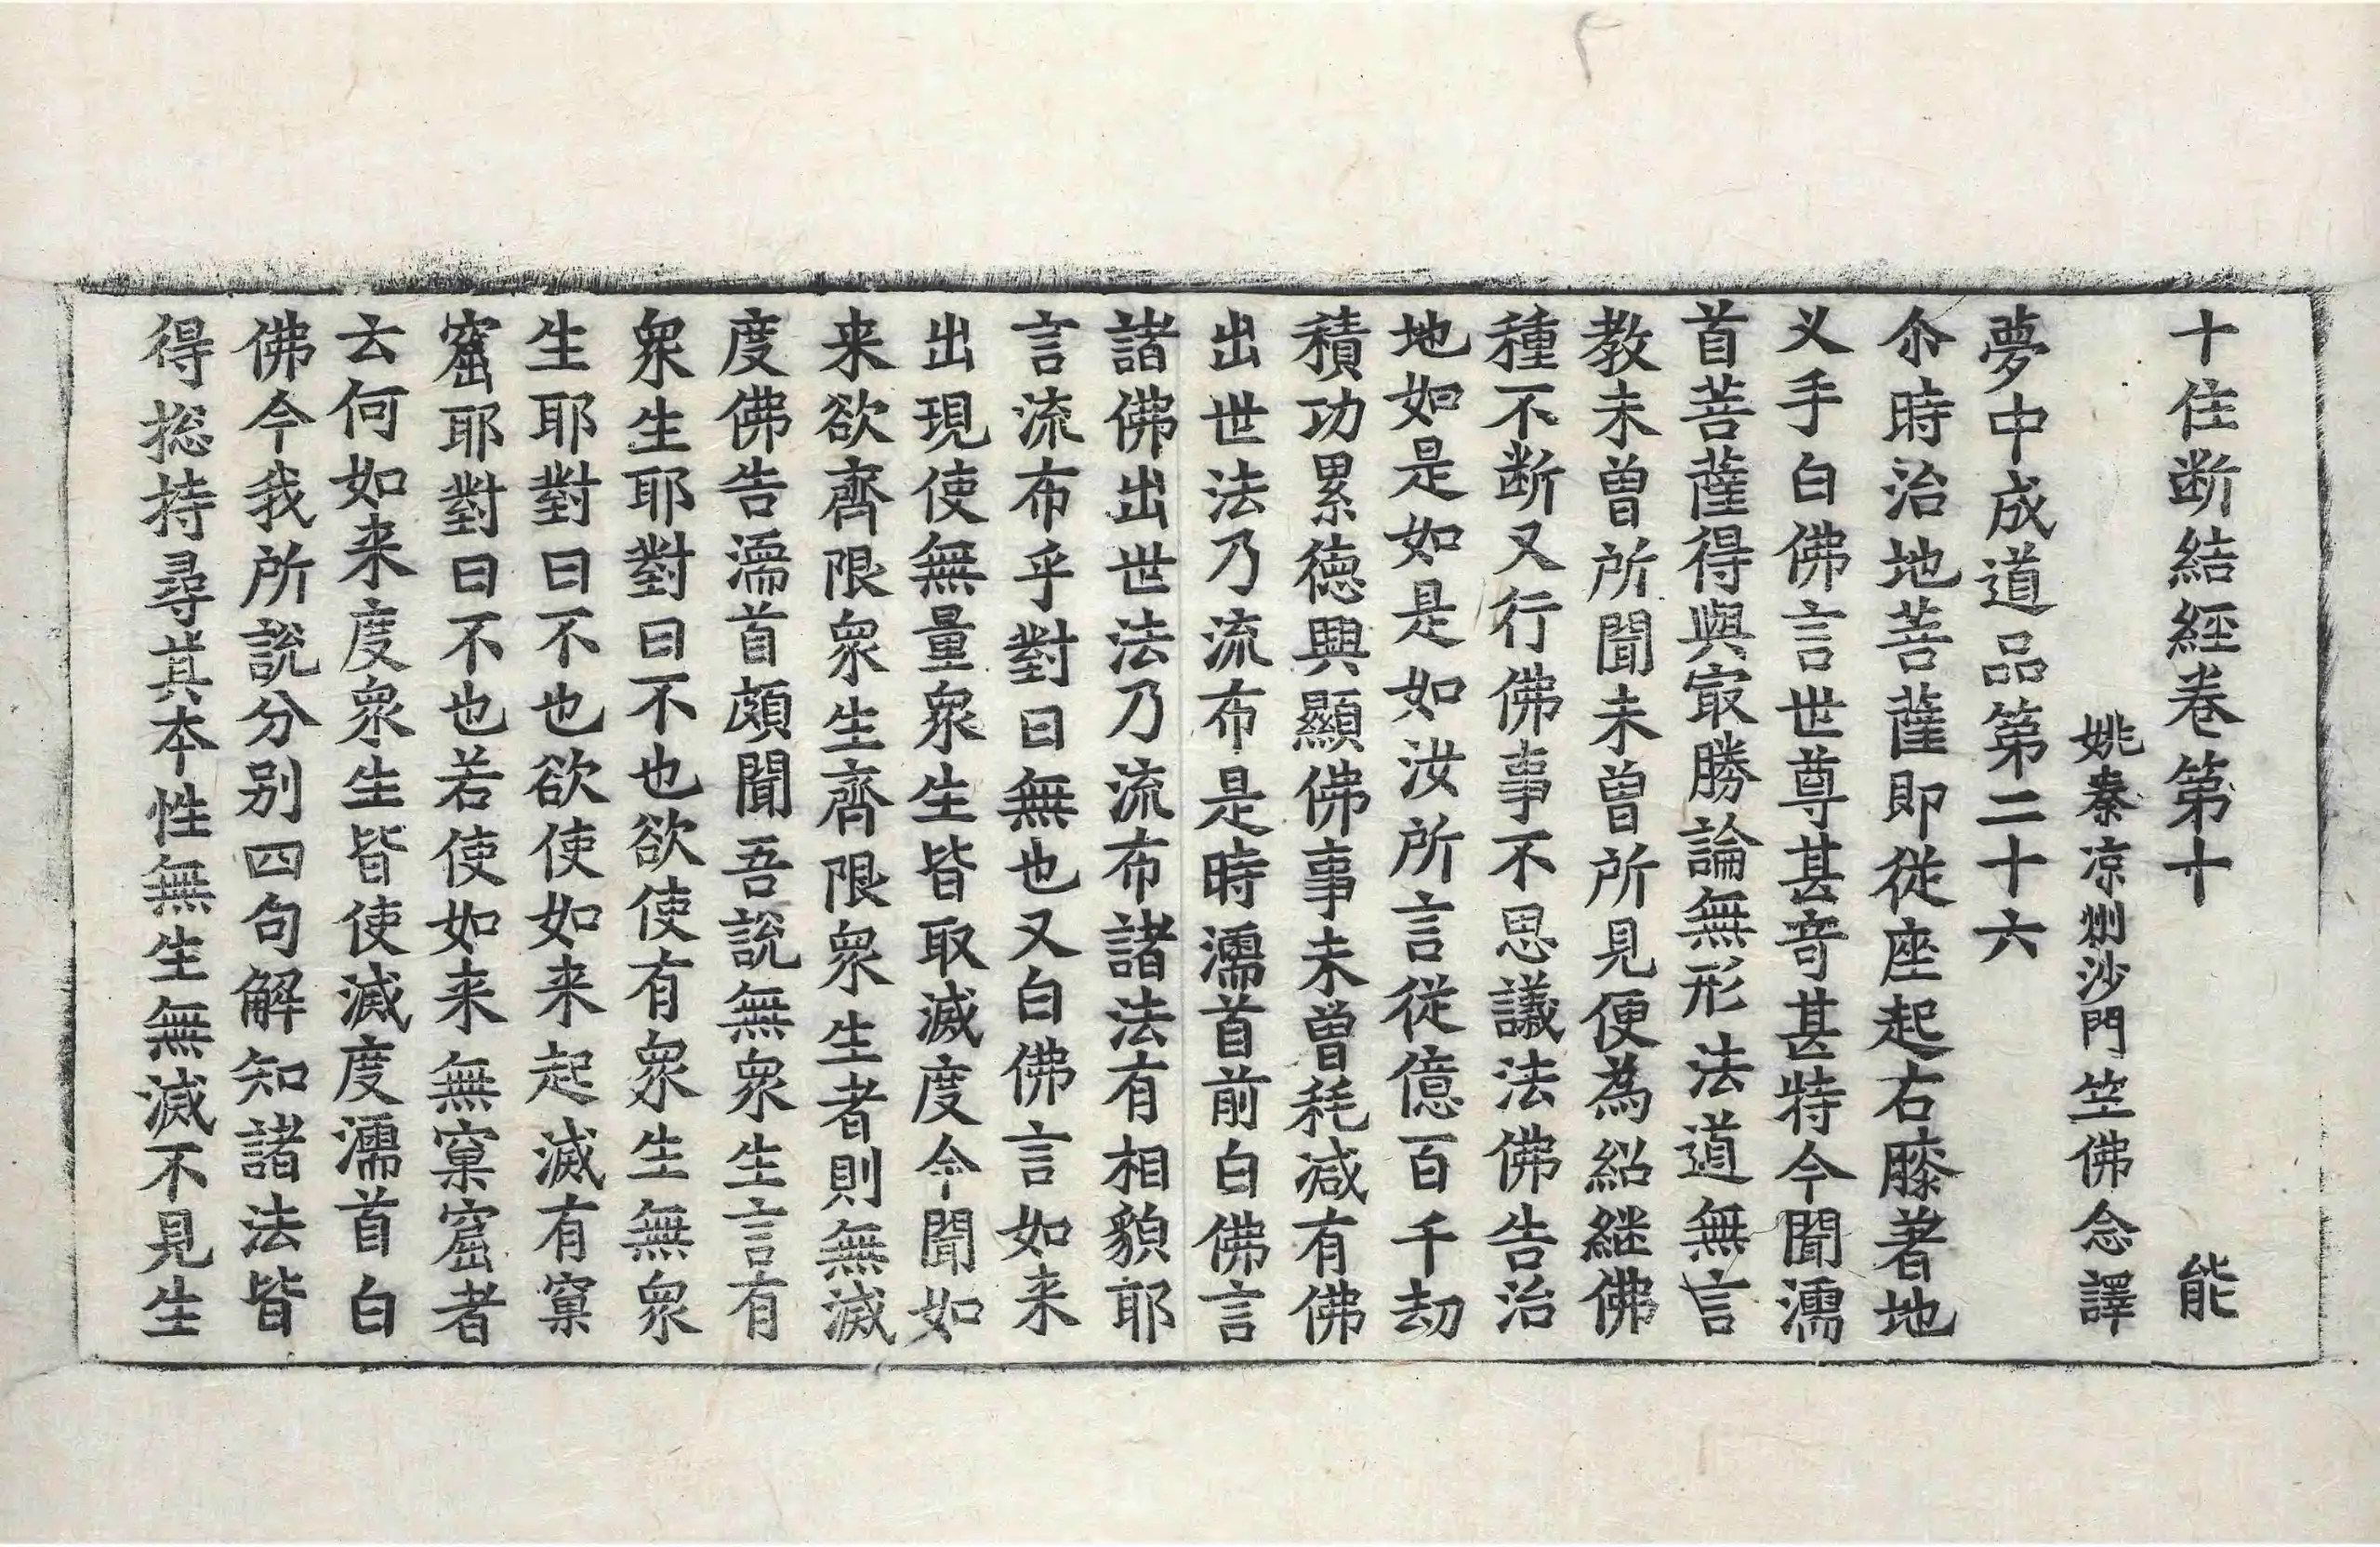 十住断結經卷第十 能
姚秦凉州沙門竺佛念譯
夢中成道品第二十六
尒時治地菩薩即從座起右膝著地
叉手白佛言世尊甚奇甚特今聞濡
首菩薩得與㝡勝論無形法道無言
教未曾所聞未曾所見便為紹継佛
種不断又行佛事不思議法佛告治
地如是如是如汝所言從億百千劫
積功累德興顯佛事未曾耗减有佛
出世法乃流布是時濡首前白佛言
諸佛出世法乃流布諸法有相貌耶
言流布乎對曰無也又白佛言如来
出現使無量衆生皆取滅度今聞如
来欲齊限衆生齊限衆生者則無滅
度佛告濡首頗聞吾說無衆生言有
衆生耶對曰不也欲使有衆生無衆
生耶對曰不也欲使如来起滅有窠
窟耶對曰不也若使如来無窠窟者
云何如来度衆生皆使滅度濡首白
佛今我所說分别四句解知諸法皆
得捴持尋其本性無生無滅不見生